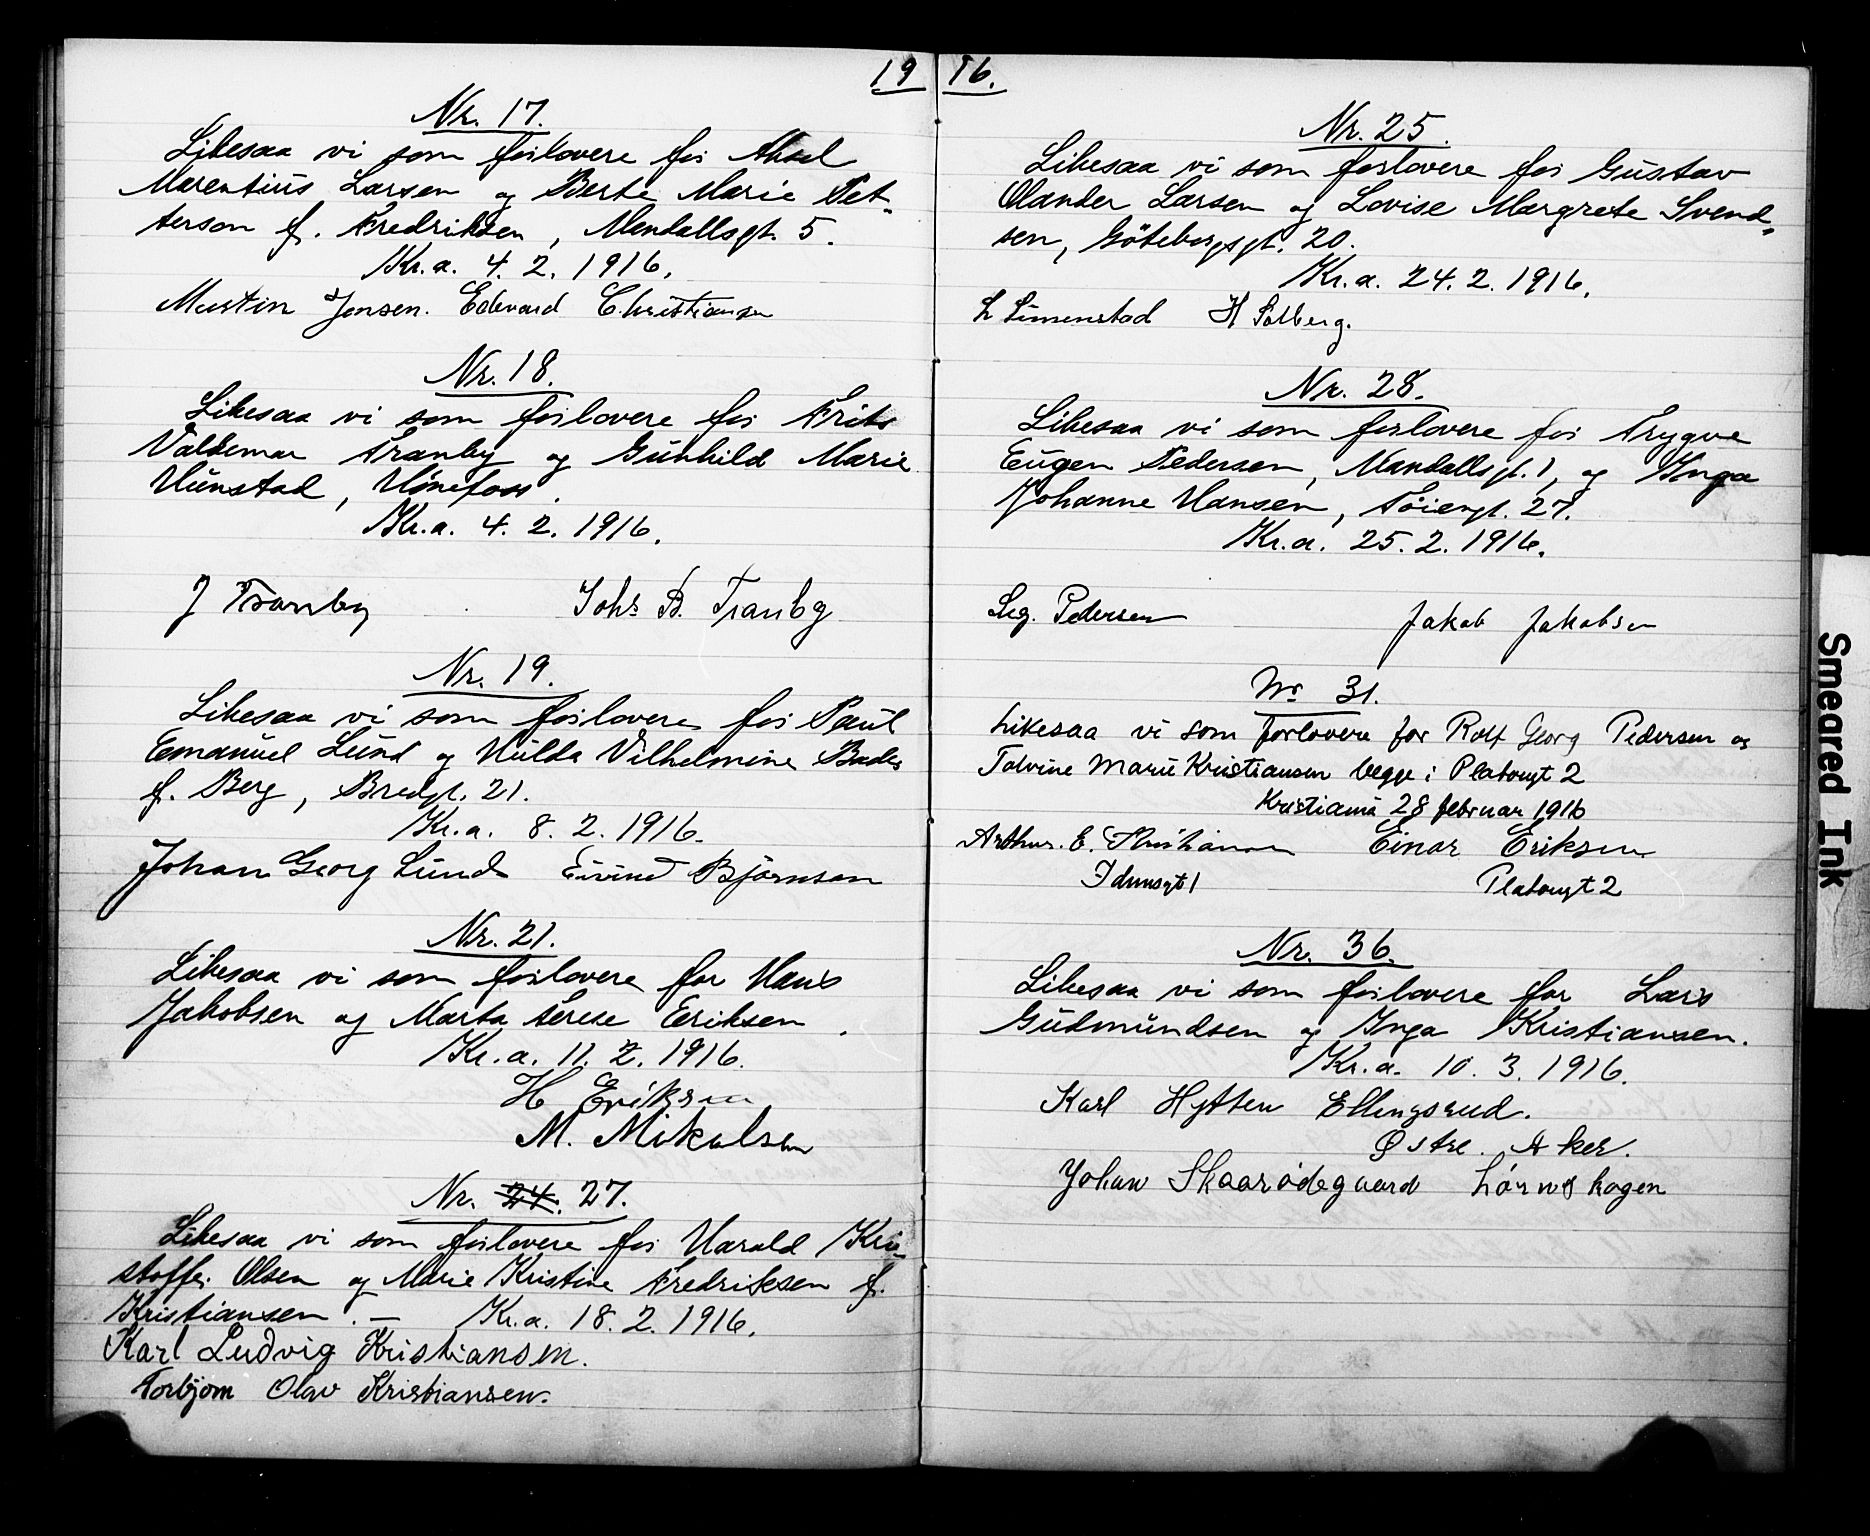 19 16.
Nr. 17.
Likesaa vi som forlovere for Aksel
Marentius Larsen og Berte Marie Pet-
terson f. Fredriksen, Mandallsgt. 5.
Kr.a. 4. 2. 1916.
Martin Jensen. Edevard Christiansen
Nr. 18.
Likesaa vi som forlovere for Frits
Valdemar Tranby og Gunhild Marie
Hunstad, Hønefoss.
Kr.a. 4. 2. 1916.
J Tranby Johs B. Tranby
Nr. 19.
Likesaa vi som forlovere for Paul
Emanuel Lund og Hulda Vilhelmine
f. Berg, Bredgt. 21.
Kr.a. 8. 2. 1916.
Johan Georg Lund Eivind Björnsen
Nr. 21.
Likesaa vi som forlovere for Hans
Jakobsen og Marta Terese Eriksen.
Kr.a. 11. 2. 1916.
H Eriksen
M. Mikalsen
Nr. 24. 27.
Likesaa vi som forlovere for Harald Kri-
stoffer Olsen og Marie Kristine Fredriksen f.
Kristiansen. — Kr.a. 18. 2. 1916.
Karl Ludvig Kristiansen.
Torbjørn Olav Kristiansen.
Nr. 25.
Likesaa vi som forlovere for Gustav
Olander Larsen og Lovise Margrete Svend-
sen, Götebergsgt. 20.
Kr.a. 24. 2. 1916.
L Simenstad H Solberg.
Nr. 28.
Likesaa vi som forlovere for Trygve
Eugen Pedersen, Mandallsgt. 1, og Inga
Johanne Hansen, Töiengt. 27.
Kr.a. 25. 2. 1916.
Pedersen Jakob Jakobsen
Nr 31.
Likesaa vi som forlovere for Rolf Georg Pedersen og
Marie Kristiansen begge i Platougt 2
Kristiania 28 februar 1916
Arthur. E. Kristiansen Einar Eriksen
Idunsgt 1 Platougt 2
Nr. 36.
Likesaa vi som forlovere for Lars
Gudmundsen og Inga Kristiansen.
Kr.a. 10. 3. 1916.
Karl Hytten Ellingsrud.
Østre. Aker.
Johan Skaarødegaard Lørnskogen
Smeared Ink